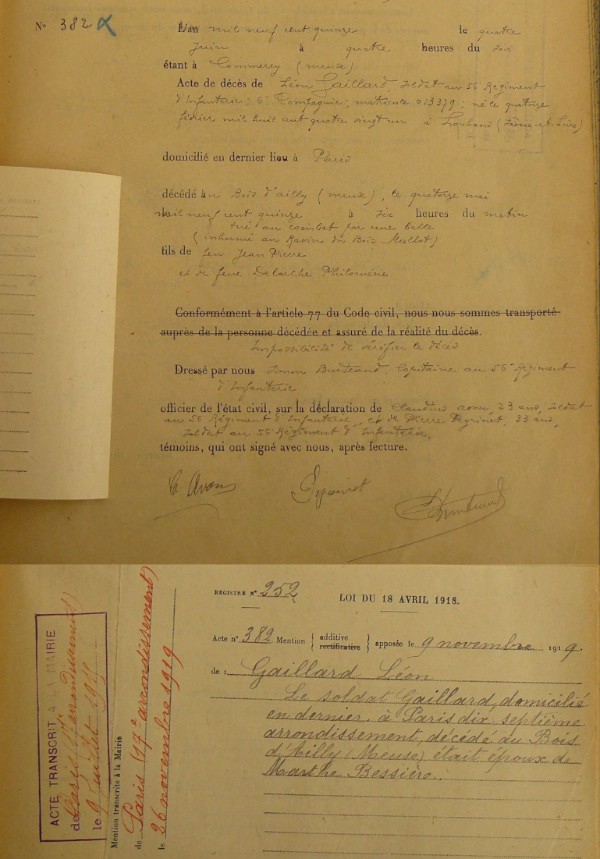 N° 382
L'an mil neuf cent quinze le quatre
juin à quatre heures du soir
étant à Commercy (Meuse)
Acte de décès de Léon Gaillard, soldat au 56 Régiment
d'Infanterie; 6e Compagnie; matricule 013379; né le quatorze
février mil huit cent quatre vingt un à Louhans (Saône-et-Loire)
domicilié en dernier lieu à Paris
décédé au Bois d'ailly (meuse), le quatorze mai
mil neuf cent quinze à six heures du matin
tué au combat par une balle
(inhumé au Ravin du Bois Mullot)
fils de feu Jean Pierre
et de feue Delarche Philomène
Conformément à l'article 77 du Code civil, nous nous sommes transporté
auprès de la personne décédée et assuré de la réalité du décès.
Impossibilité de vérifier le décès
Dressé par nous Capitaine au 56e Régiment
d'Infanterie
officier de l'état civil, sur la déclaration de Claudius Avon, 23 ans, soldat
au 56 Régiment d'Infanterie et de Pierre 33 ans,
soldat au 56 Régiment d'Infanterie,
témoins, qui ont signé avec nous, après lecture.
C. Avon
REGISTRE N° 252
LOI DU 18 AVRIL 1918.
Acte n° 382 Mention { additive rectificative } apposée le 9 novembre 1919.
de : Gaillard Léon
Le soldat Gaillard, domicilié
en dernier à Paris dix septième
arrondissement, décédé au Bois
d'Ailly (Meuse) était époux de
Marthe Bessière.
ACTE TRANSCRIT A LA MAIRIE
de Paris 17e arrondissement)
le 9 juillet
Mention transcrite à la Mairie
de Paris (17e arrondissement)
le 26 novembre 1919